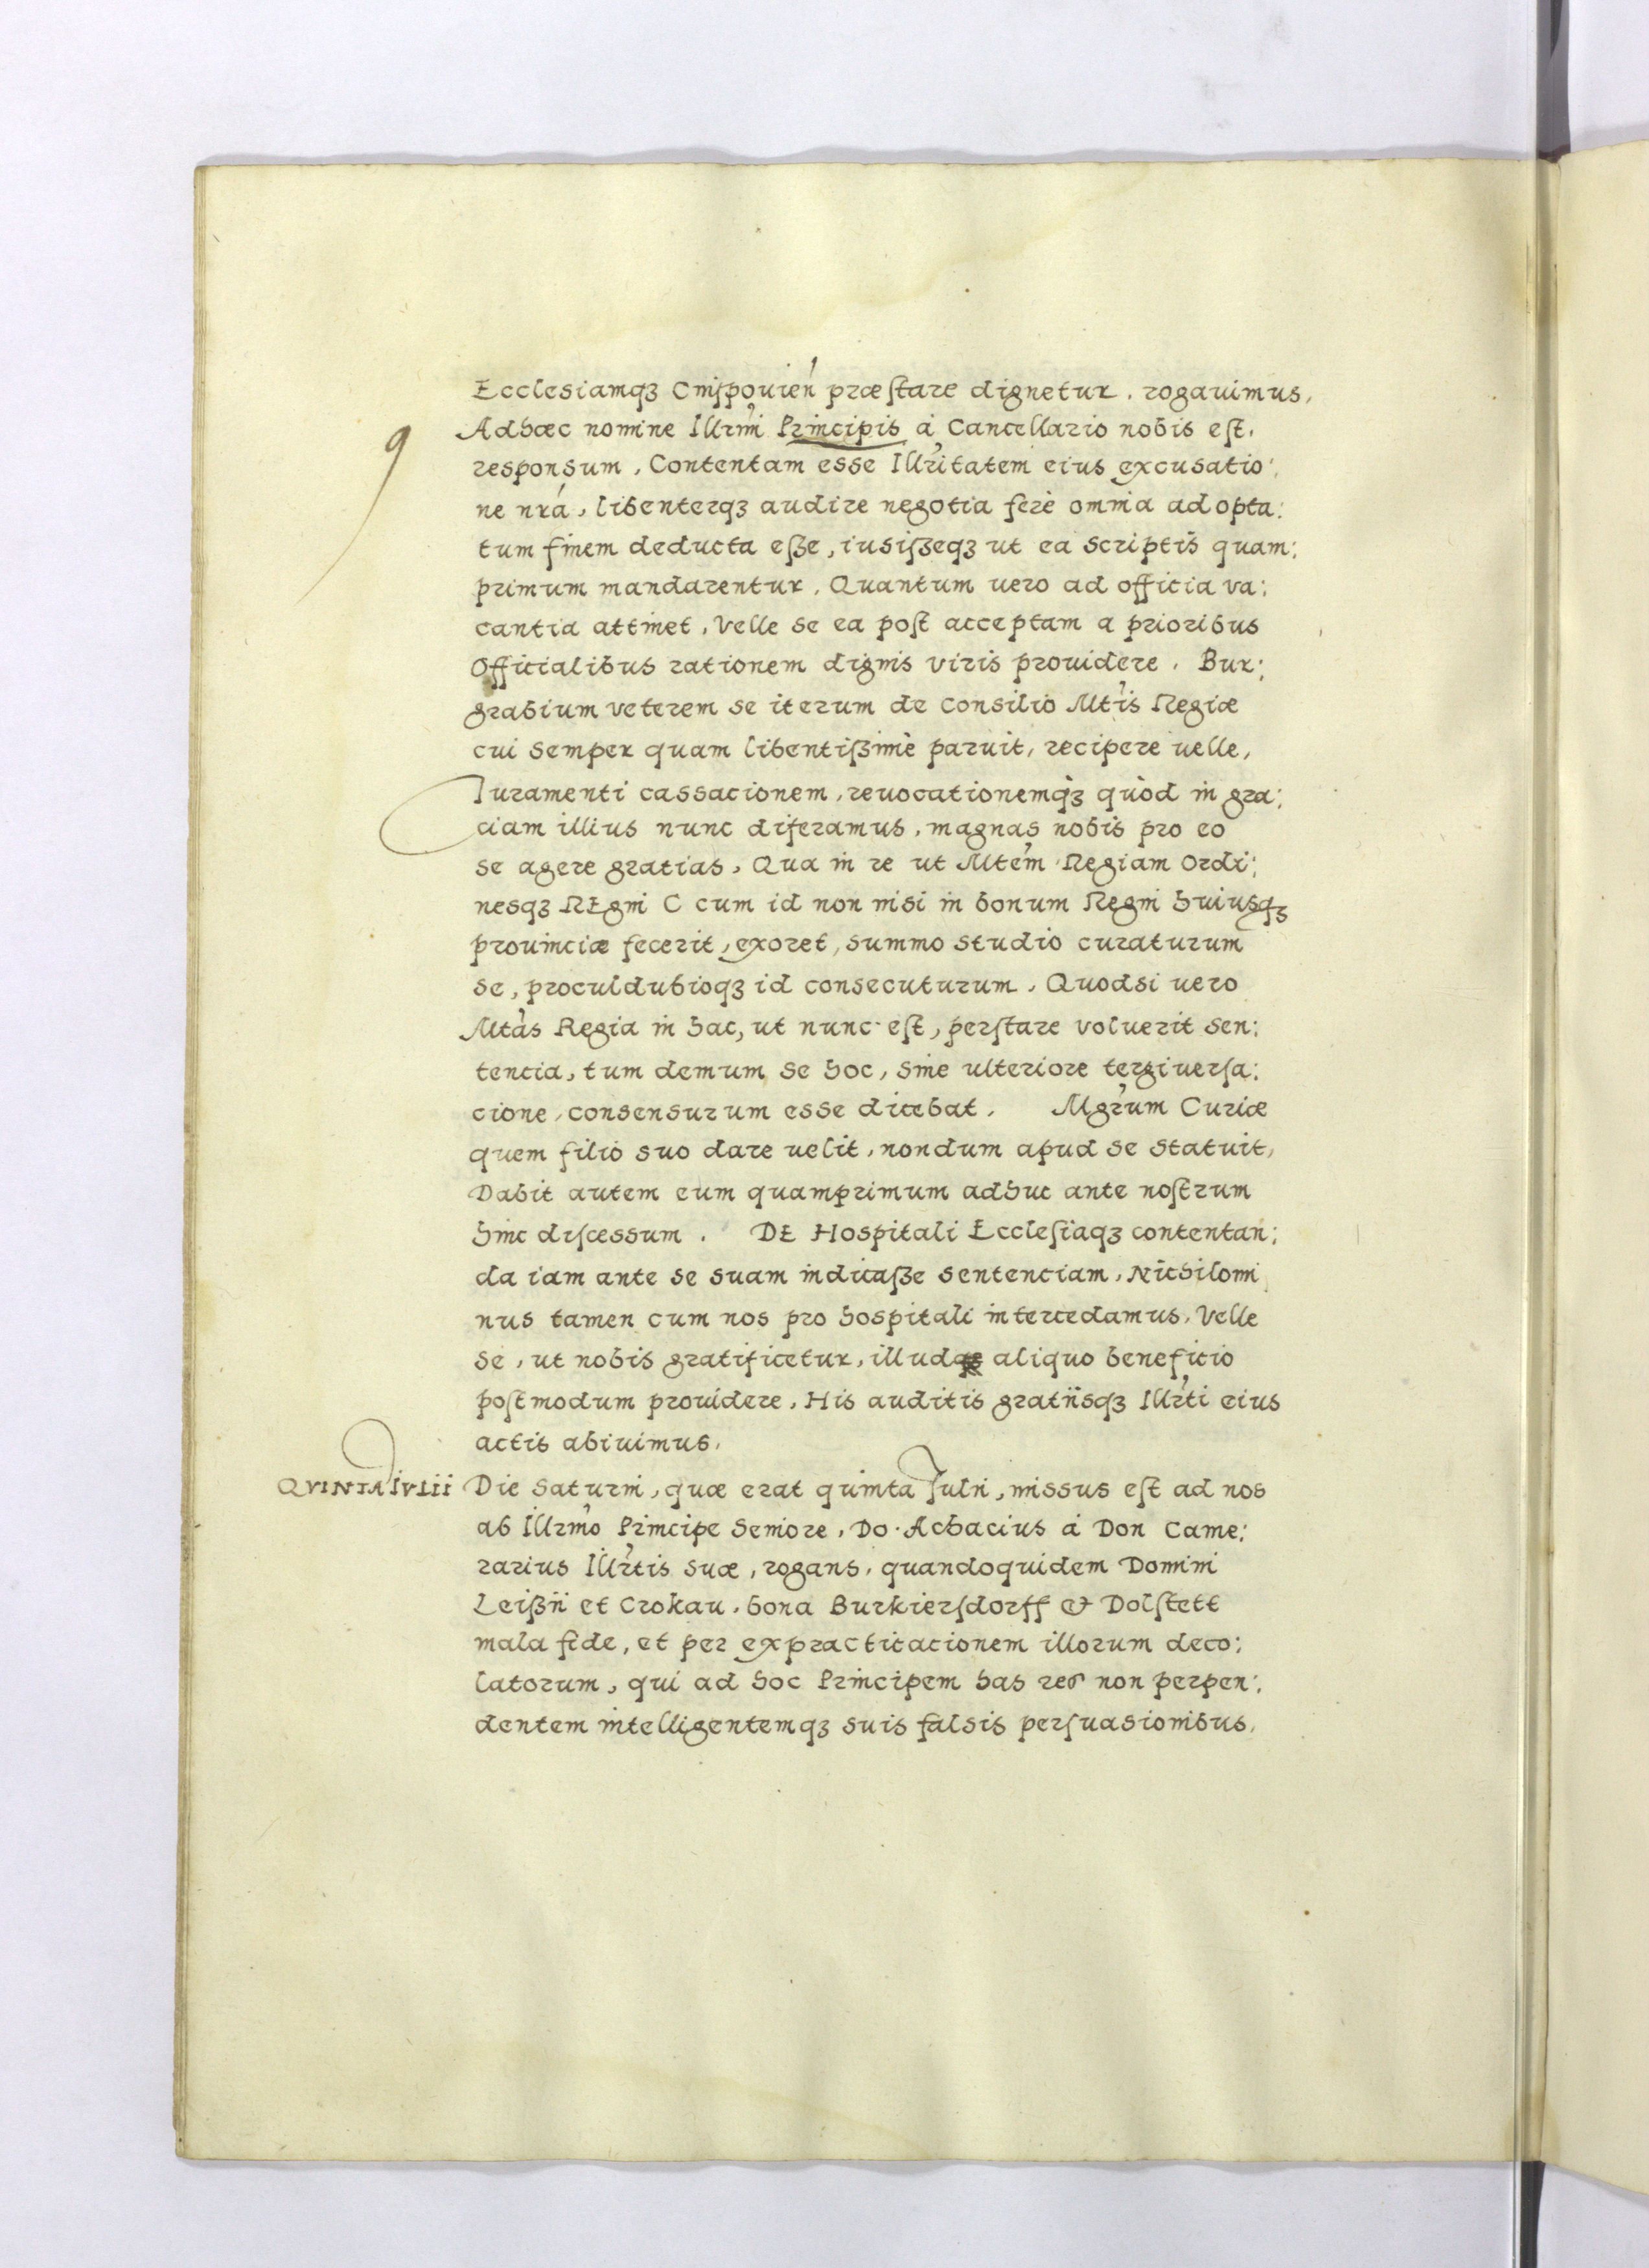 Ecclesiamqꝫ Cnispouień præstare dignetur, rogauimus,
9
Adhæc nomine Illrmi Principis á Cancellario nobis est,
responsum, Contentam esse Illritatem eius excusatio:
ne nrá, libenterqꝫ audire negotia ferè omnia ad opta:
tum finem deducta eſze, iusiſzeqꝫ ut ea scriptis quam:
primum mandarentur, Quantum uero ad officia va:
cantia attinet, velle se ea post acceptam a prioribus
Officialibus rationem dignis viris prouidere, Bur:
grabium veterem se iterum de consilio Mtis Regiæ
cui semper quam libentiſzimè paruit, recipere uelle,
Iuramenti cassacionem, reuocationemqꝫ quòd in gra:
ciam illius nunc diferamus, magnas nobis pro eo
se agere gratias, Qua in re ut Mtem Regiam Ordi:
nesqꝫ REgni C cum id non nisi in bonum Regni huiusqꝫ
prouinciæ fecerit, exoret, summo studio curaturum
se, proculdubioqꝫ id consecuturum, Quodsi uero
Mtas Regia in hac, ut nunc est, perstare voluerit sen:
tencia, tum demum se hoc, sine ulteriore tergiuersa:
cione, consensurum esse dicebat, Mgrum Curiæ
quem filio suo dare uelit, nondum apud se statuit,
Dabit autem eum quamprimum adhuc ante nostrum
hinc discessum. DE Hospitali Ecclesiaqꝫ contentan:
da iam ante se suam indicaſze sentenciam, Nichilomi
nus tamen cum nos pro hospitali intercedamus, velle
se, ut nobis gratificetur, illud aliquo beneficio
postmodum prouidere, His auditis gratiisqꝫ Illrti eius
actis abiuimus,
QVINTA IVLii Die Saturni, quæ erat quinta Julii, missus est ad nos
ab Illrmo Principe Seniore, Do. Achacius á Don Came:
rarius Illrtis suæ, rogans, quandoquidem Domini
Leiſzii et Crokau, bona Burkiersdorff & Dolstett
mala fide, et per expracticacionem illorum deco:
latorum, qui ad hoc Principem has res non perpen:
dentem intelligentemqꝫ suis falsis persuasionibus,